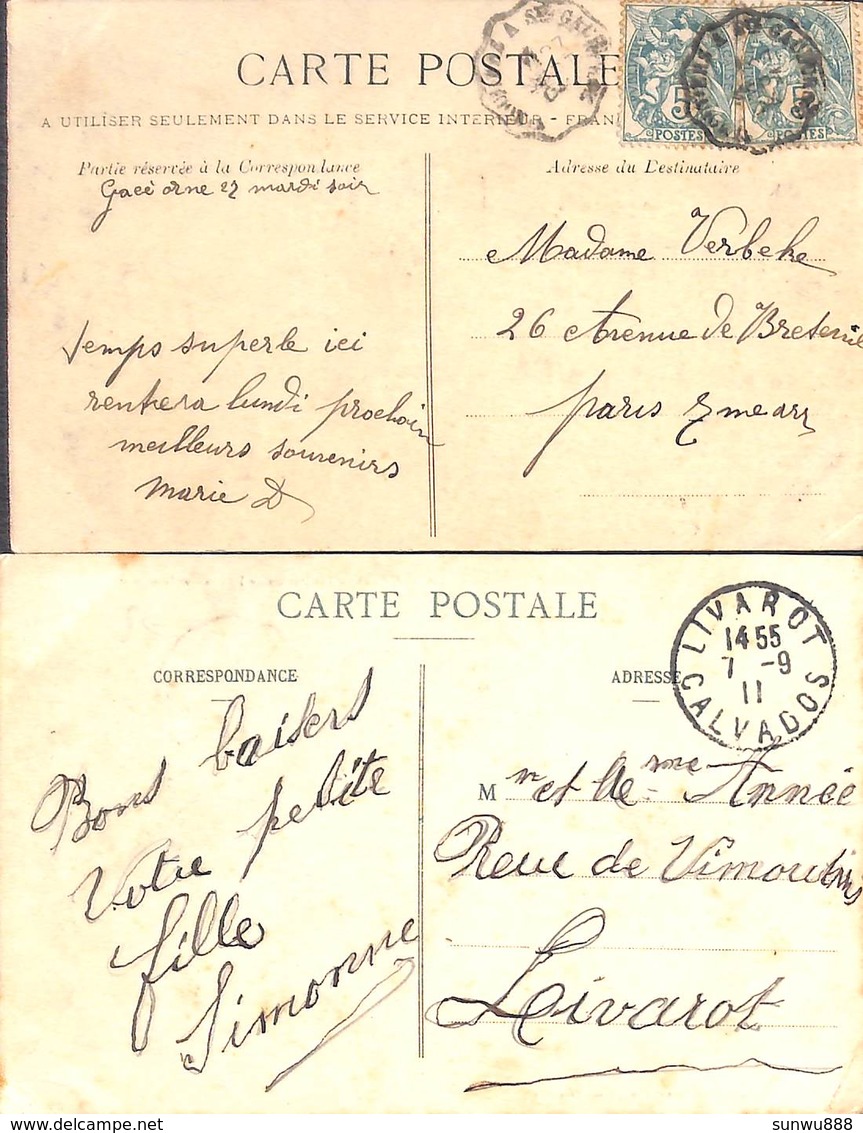 CARTE POSTALE
A UTILISER SEULEMENT DANS LE SERVICE INTERIEUR - FRAN
Partie réservée à la Correspondance
Adresse du Destinataire
Gacé orne 27 mardi soir
5 5
POSTES POSTES
Madame Verbeke
26 Avenue de Breteuil
paris 7me arr
Temps superbe ici
rentrera lundi prochain
meilleurs souvenirs
Marie D
CARTE POSTALE
CORRESPONDANCE
ADRESSE
LIVAROT
14 55
7 -9
11
CALVADOS
Bons baisers
Votre petite
fille
Simonne
Mr et Me me Année
Reue de Vimoutiers
Livarot
sunwu888